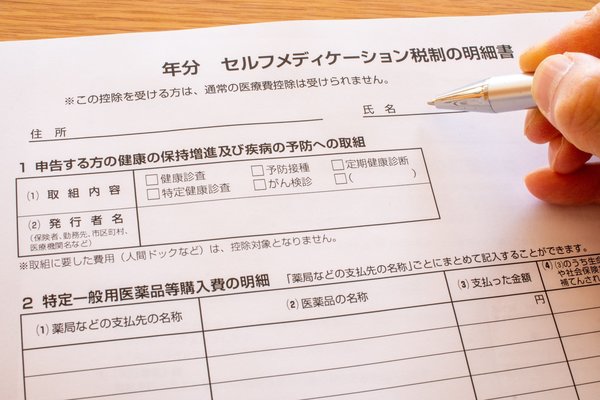 年分 セルフメディケーション税制の明細書
※この控除を受ける方は、通常の医療費控除は受けられません。
住 所
氏 名
1 申告する方の健康の保持増進及び疾病の予防への取組
(1) 取 組 内 容
□健康診査 □予防接種 □定期健康診断
□特定健康診査 □がん検診 □( )
(2) 発 行 者 名
(保険者、勤務先、市区町村、
医療機関名など)
※取組に要した費用(人間ドックなど)は、控除対象となりません。
2 特定一般用医薬品等購入費の明細 「薬局などの支払先の名称」ごとにまとめて記入することができます。
(1)薬局などの支払先の名称
(2)医薬品の名称
(3)支払った金額
円
(4) (3)のうち生命
や社会保険
補てんされ